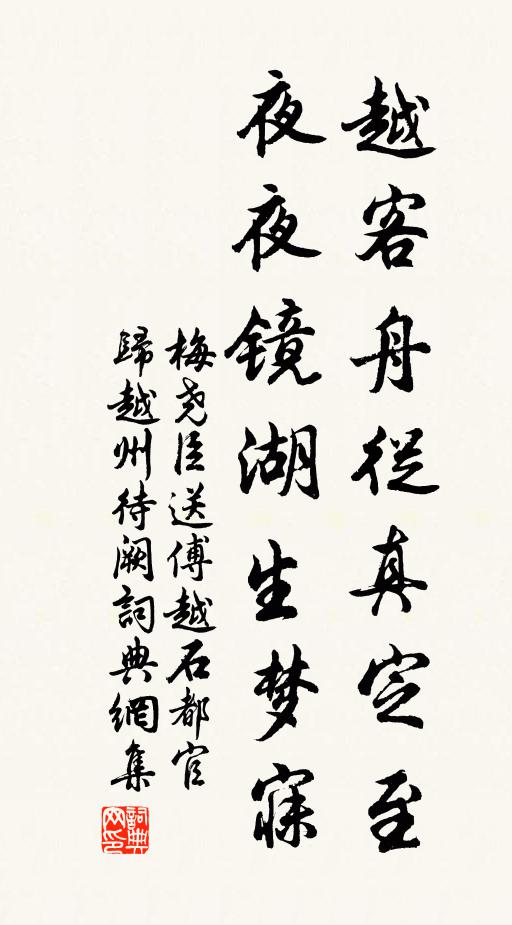 越客舟从真定至
夜夜镜湖生梦寐
梅尧臣送傅越石都官
歸越州待阙詞典網集
詞典网印